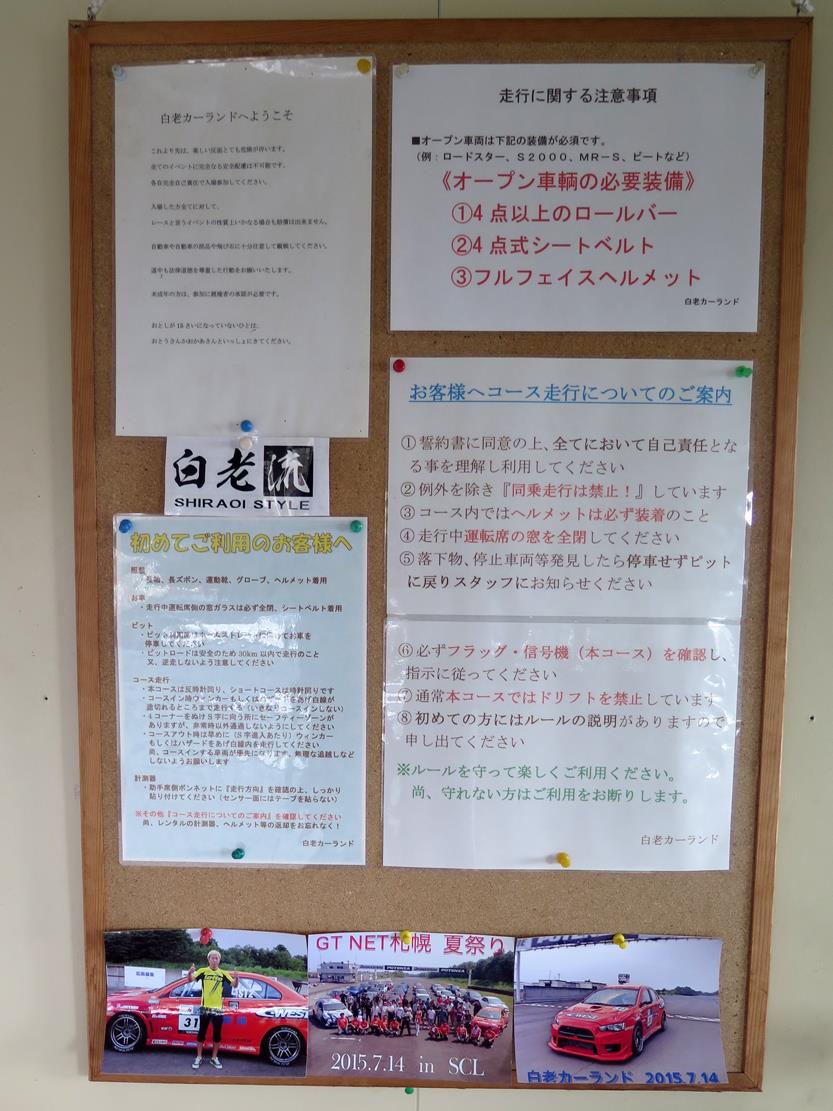 白老カーランドへようこそ
これより先は、楽しい反面とても危険が伴います。
全てのイベントに完全なる安全配慮は不可能です。
各自完全自己責任で入場参加してください。
入場した方全てに対して、
レースと言うイベントの性質上いかなる場合も賠償は出来ません。
自動車や自動車の部品や飛び石に十分注意して観戦してください。
道中も法律道徳を尊重した行動をお願いいたします。
未成年の方は、参加に親権者の承諾が必要です。
おとしが18さいになっていないひとは、
おとうさんかおかあさんといっしょにきてください。
走行に関する注意事項
■オープン車両は下記の装備が必須です。
（例：ロードスター、S2000、MR－S、ビートなど）
《オープン車輌の必要装備》
①4点以上のロールバー
②4点式シートベルト
③フルフェイスヘルメット
白老カーランド
白老流
SHIRAOI STYLE
初めてご利用のお客様へ
服装
・長袖、長ズボン、運動靴、グローブ、ヘルメット着用
お車
・走行中運転席側の窓ガラスは必ず全閉、シートベルト着用
ピット
停車してください
・ピットロードは安全のため30km以内で走行のこと
又、逆走しないよう注意してください
コース走行
・本コースは反時計周り、ショートコースは時計回りです
・コースイン時ウィンカーもしくは をあげ白線が
途切れるところまで走行する（いきなりコースインしない）
・4コーナーをぬけS字に向う所にセーフティーゾーンが
ありますが、非常時以外通過しないようにしてください
・コースアウト時は早めに（S字進入あたり）ウィンカー
もしくはハザードをあげ白線内を走行してください
尚、コースインする車両が優先になります、無理な追越しなど
しないようお願いします
計測器
・助手席側ボンネットに『走行方向』を確認の上、しっかり
貼り付けてください（センサー面にはテープを貼らない）
※その他『コース走行についてのご案内』を確認してください
尚、レンタルの計測器、ヘルメット等の返却をお忘れなく！
白老カーランド
お客様へコース走行についてのご案内
① 誓約書に同意の上、全てにおいて自己責任とな
る事を理解し利用してください
② 例外を除き『同乗走行は禁止！』しています
③ コース内ではヘルメットは必ず装着のこと
④ 走行中運転席の窓を全閉してください
⑤ 落下物、停止車両等発見したら停車せずピット
に戻りスタッフにお知らせください
⑥ 必ずフラッグ・信号機（本コース）を確認し、
指示に従ってください
⑦ 通常本コースではドリフトを禁止しています
⑧ 初めての方にはルールの説明がありますので
申し出てください
※ルールを守って楽しくご利用ください。
尚、守れない方はご利用をお断りします。
白老カーランド
31
GT NET札幌 夏祭り
POTENZA
2015.7.14 in SCL
白老カーランド 2015.7.14